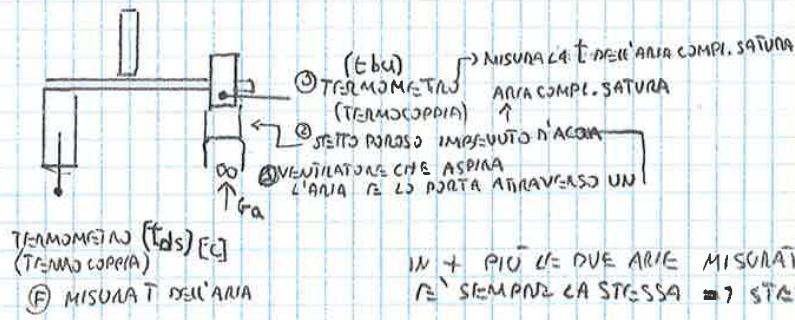 (tbu)
③ TERMOMETRO → MISURA LA t DELL'ARIA COMPL. SATURA
(TERMOCOPPIA) ARIA COMPL. SATURA
② SETTO POROSO IMBEVUTO D'ACQUA
① VENTILATORE CHE ASPIRA
L'ARIA E LO PORTA ATTRAVERSO UN
Ga
TERMOMETRO (tds) [C]
(TERMOCOPPIA)
Ⓕ MISURA T DELL'ARIA
IN + PIÙ LE DUE ARIE MISURAT
E' SEMPRE LA STESSA => STE